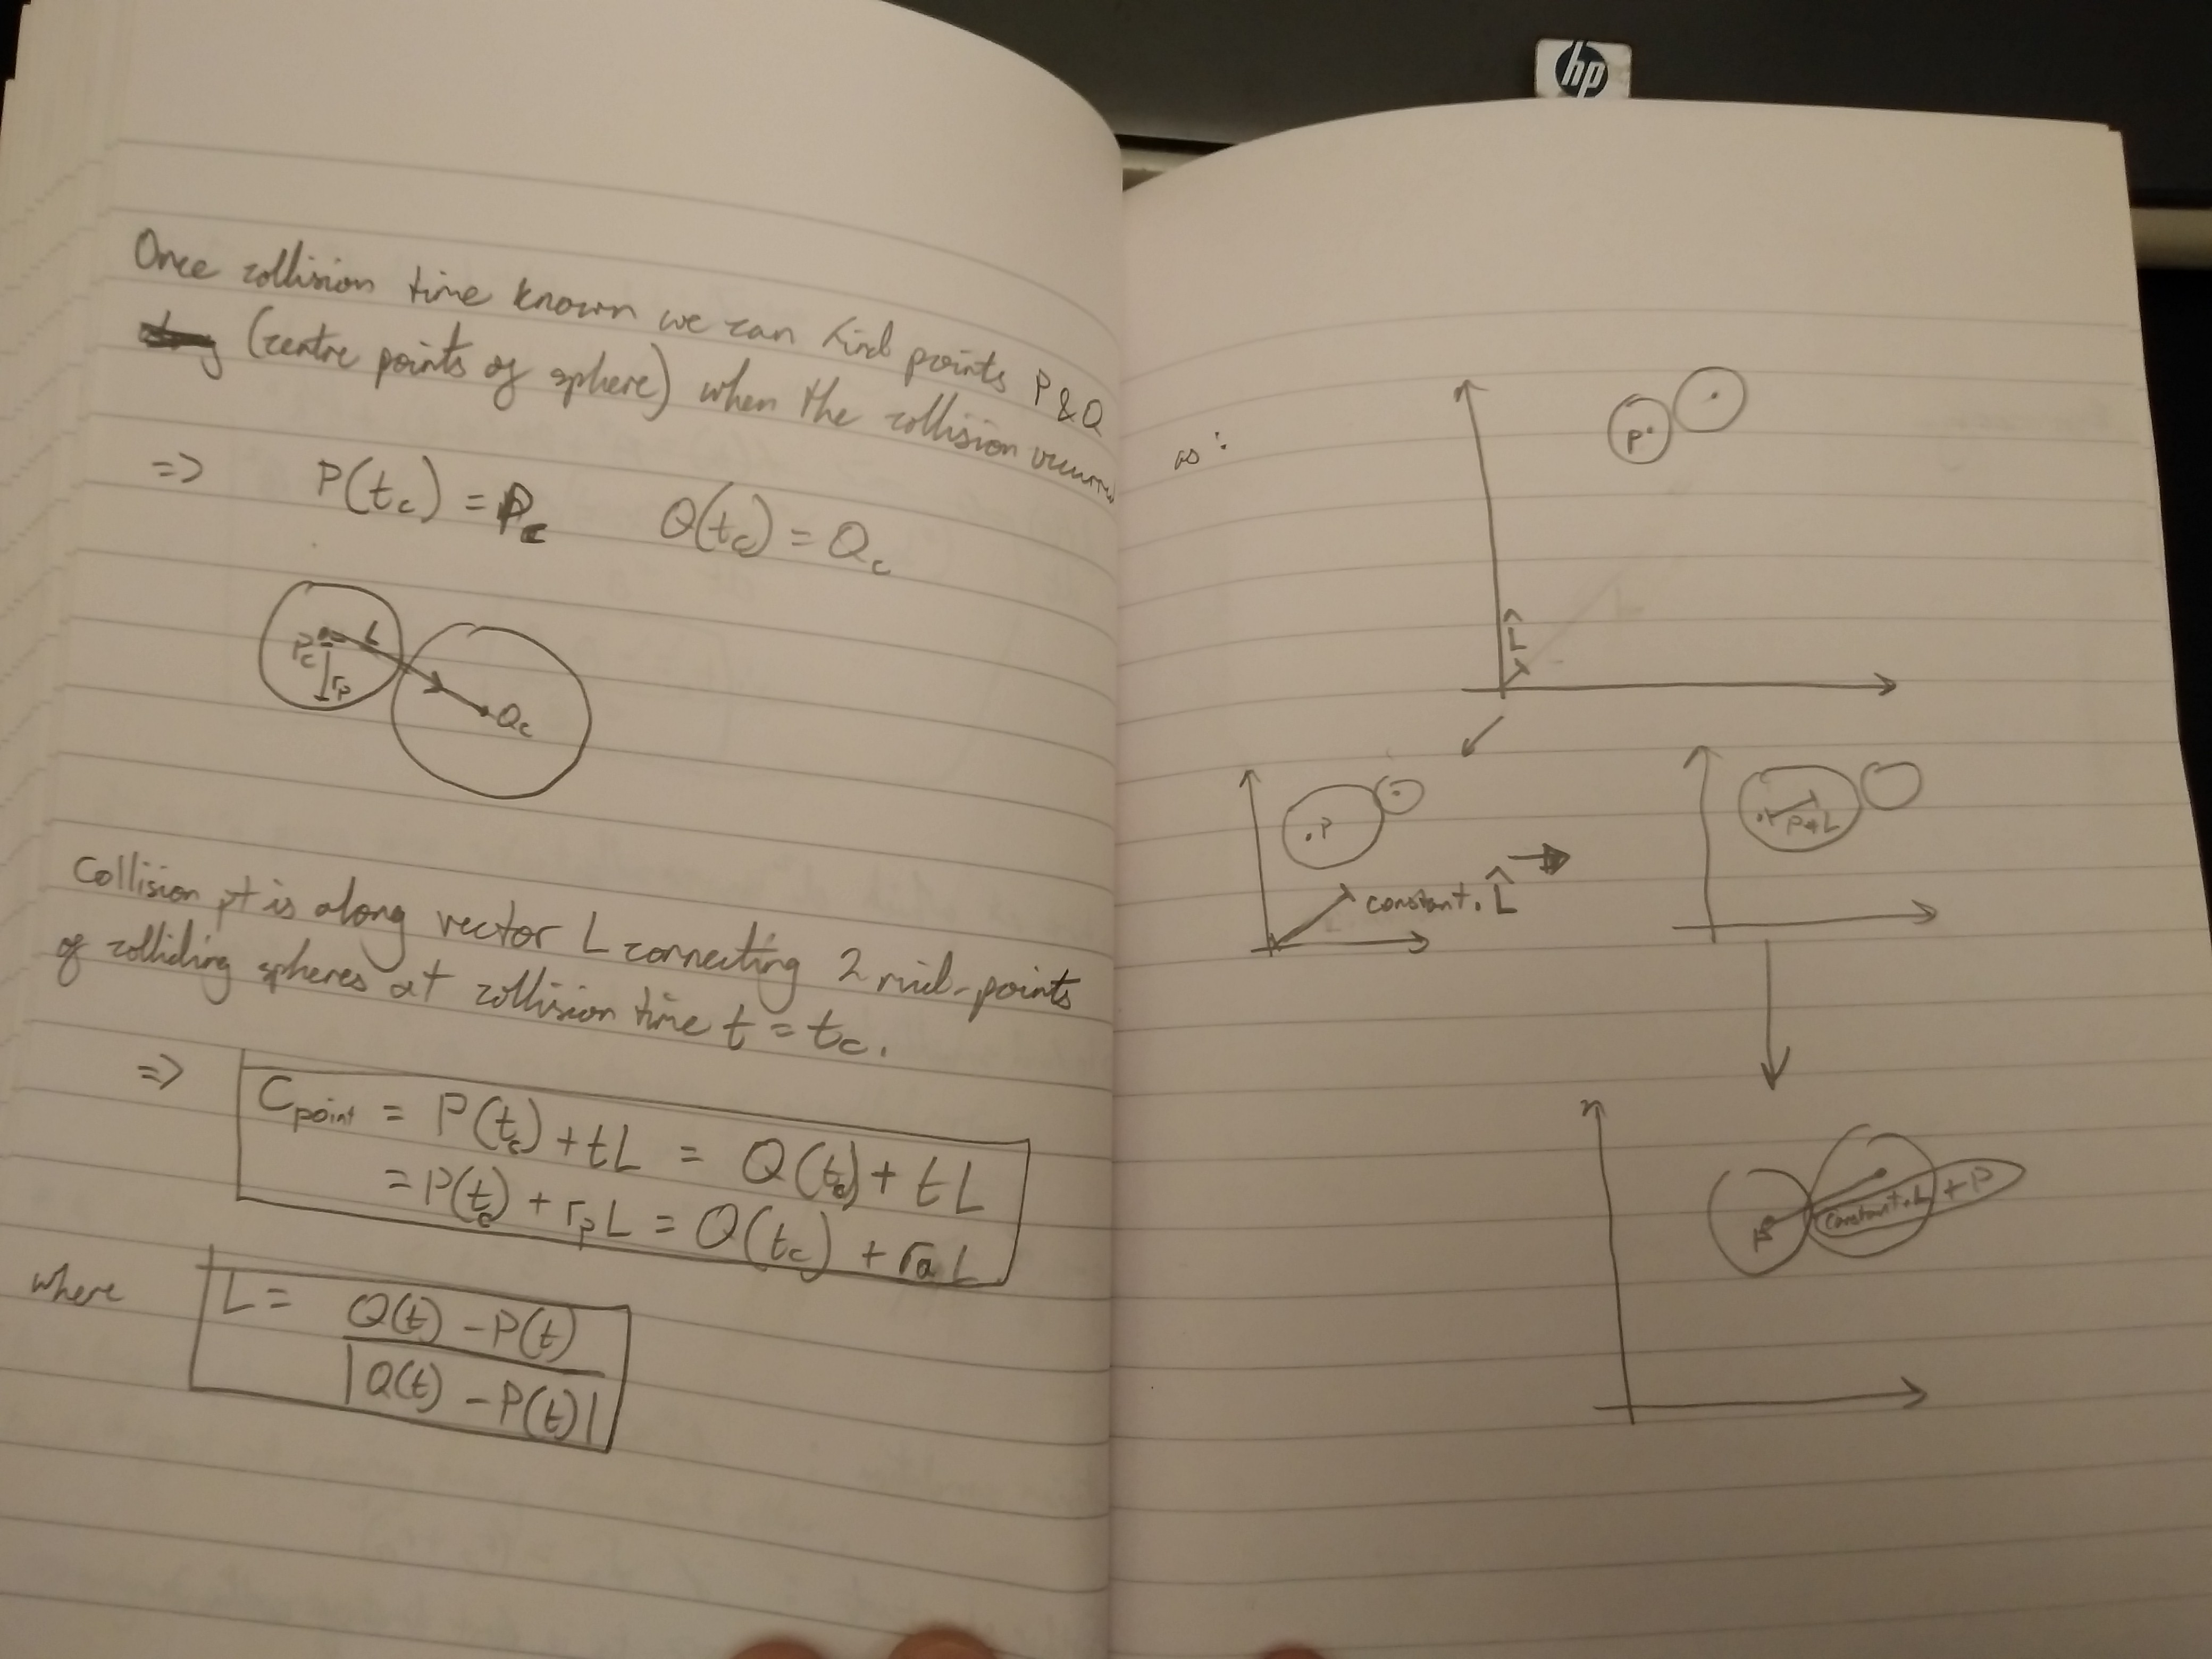 hp
Once collision time known we can find points P & Q
(centre points of sphere) when the collision
=> P(t_c) = P_c Q(t_c) = Q_c
P_c L r_p Q_c
Collision pt is along vector L connecting 2 mid-points
of colliding spheres at collision time t = t_c.
=> C_point = P(t_c) + tL = Q(t_c) + tL
= P(t_c) + r_p L = Q(t_c) + r_Q L
where L = Q(t) - P(t)
|Q(t) - P(t)|
as:
P
L̂
P
constant . L̂
P+L
P
constant . L + P